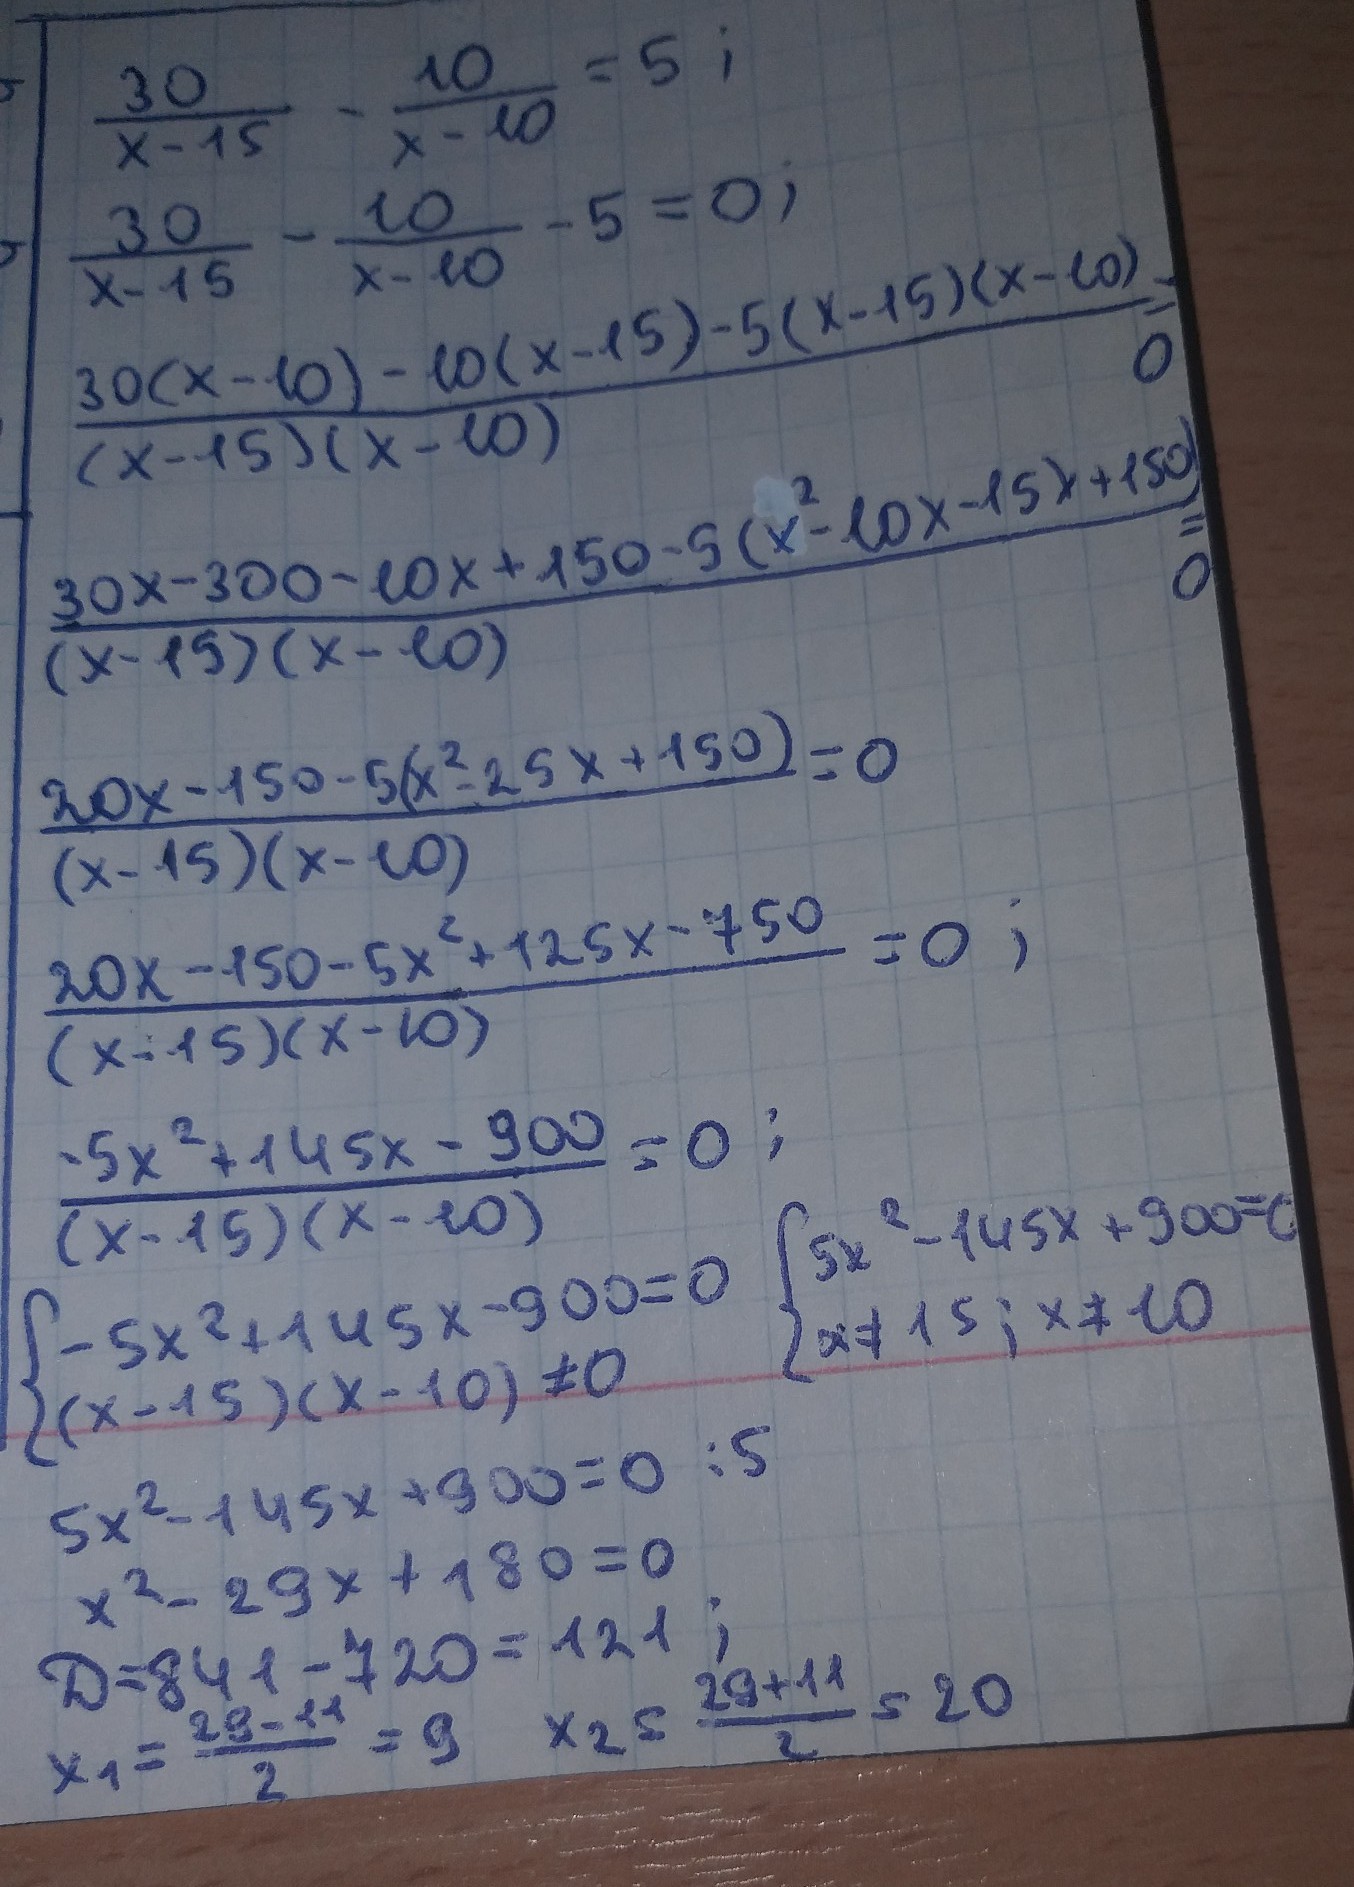 30/(x-15) - 10/(x-10) = 5;
30/(x-15) - 10/(x-10) - 5 = 0;
(30(x-10) - 10(x-15) - 5(x-15)(x-10))/((x-15)(x-10)) = 0
(30x-300-10x+150-5(x²-10x-15x+150))/((x-15)(x-10)) = 0
(20x-150-5(x²-25x+150))/((x-15)(x-10)) = 0
(20x-150-5x²+125x-750)/((x-15)(x-10)) = 0;
(-5x²+145x-900)/((x-15)(x-10)) = 0;
{-5x²+145x-900=0 {5x²-145x+900=0
(x-15)(x-10)≠0 x≠15; x≠10
5x²-145x+900=0 :5
x²-29x+180=0
D=841-720=121;
x₁=(29-11)/2=9 x₂=(29+11)/2=20